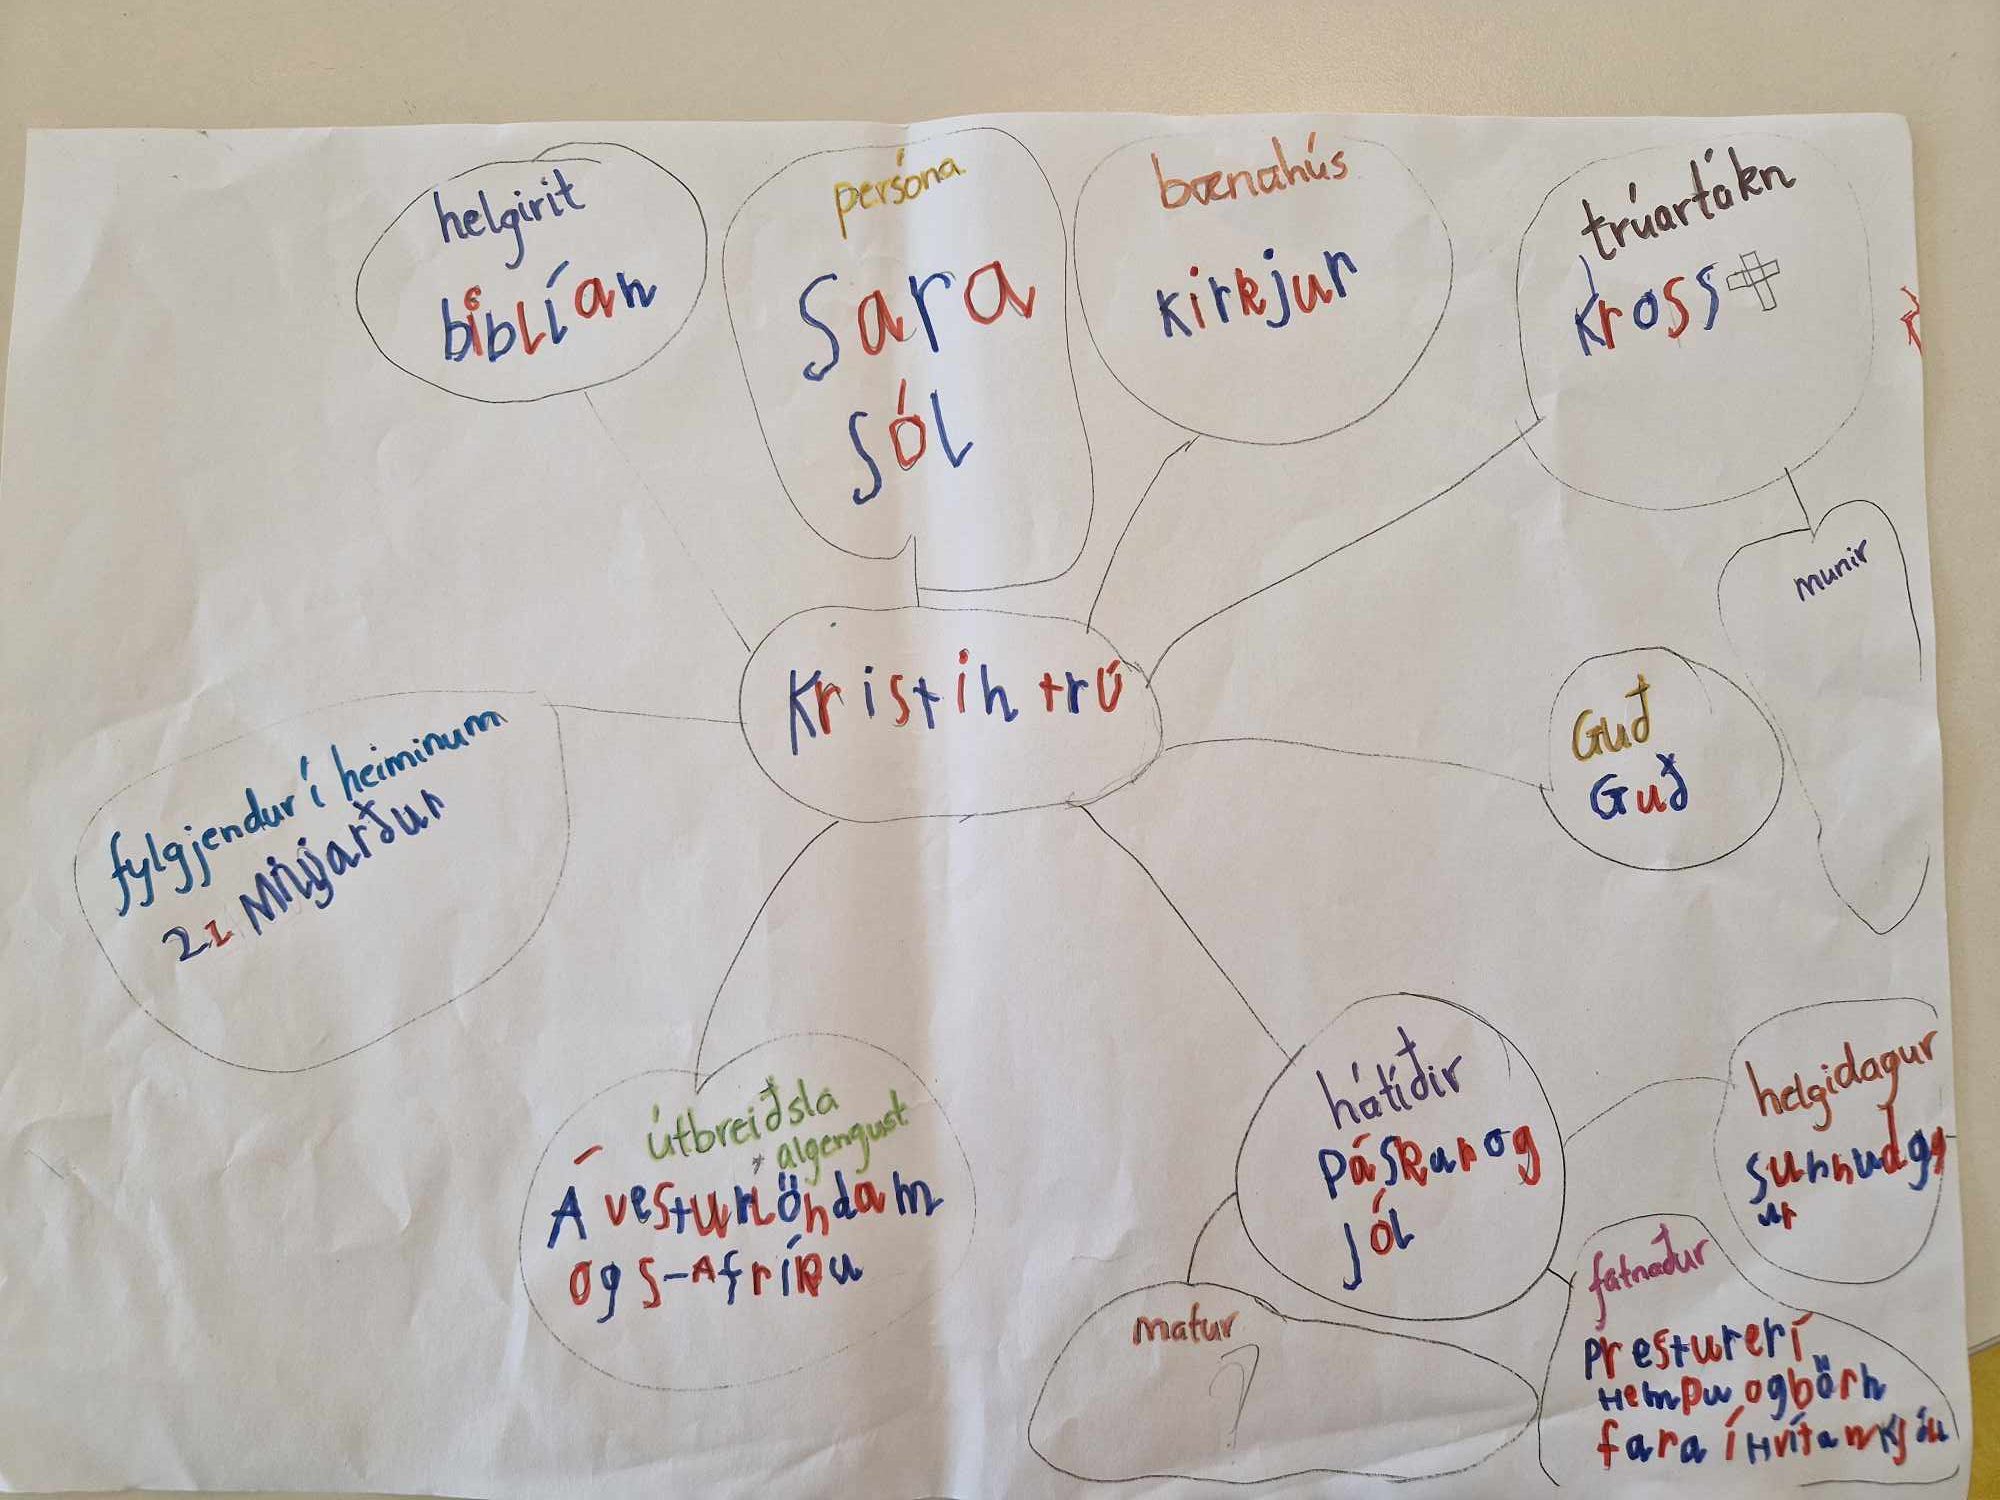 helgirit
biblían
persóna
Sara
Sól
bænahús
kirkjur
trúartákn
kross
munir
Kristin trú
Guð
Guð
fylgjendur í heiminum
21 Milljarður
útbreiðsla
algengust
Á vesturlöndam
og S-Afríku
hátíðir
Páskar og
jól
helgidagur
sunnudag
ur
matur
?
fatnaður
Prestur er í
Hempu og börn
fara í Hvítan kjól